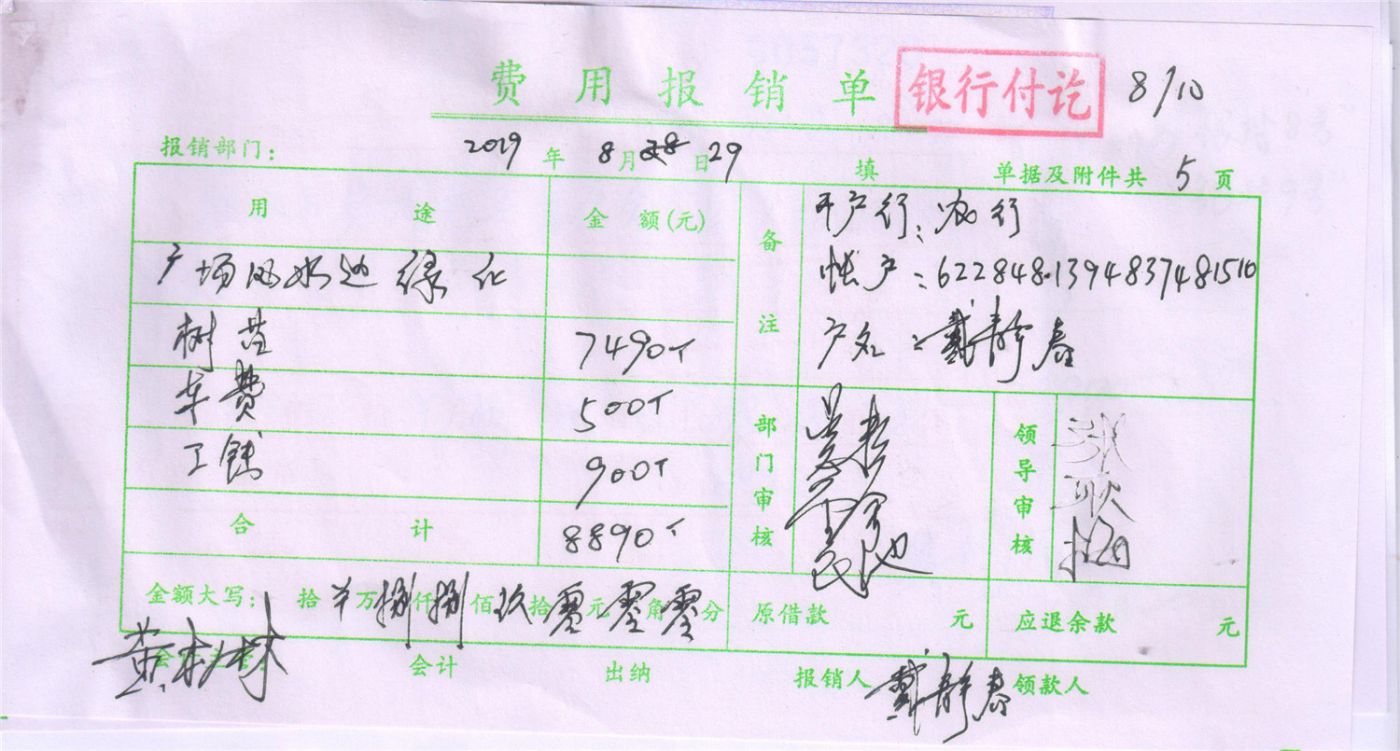 费用报销单 银行付讫 8/10
报销部门： 2019年8月28日29 填 单据及附件共5页
用途 金额(元) 备注 开户行：农行
广场风水池绿化 帐户：6228481394837481510
户名：戴静春
树苗 7490
车费 500
工钱 900
部门审核 领导审核
合计 8890
金额大写： 拾 万捌仟捌佰玖拾零元零角零分 原借款 元 应退余款 元
会计 出纳 报销人 戴静春 领款人